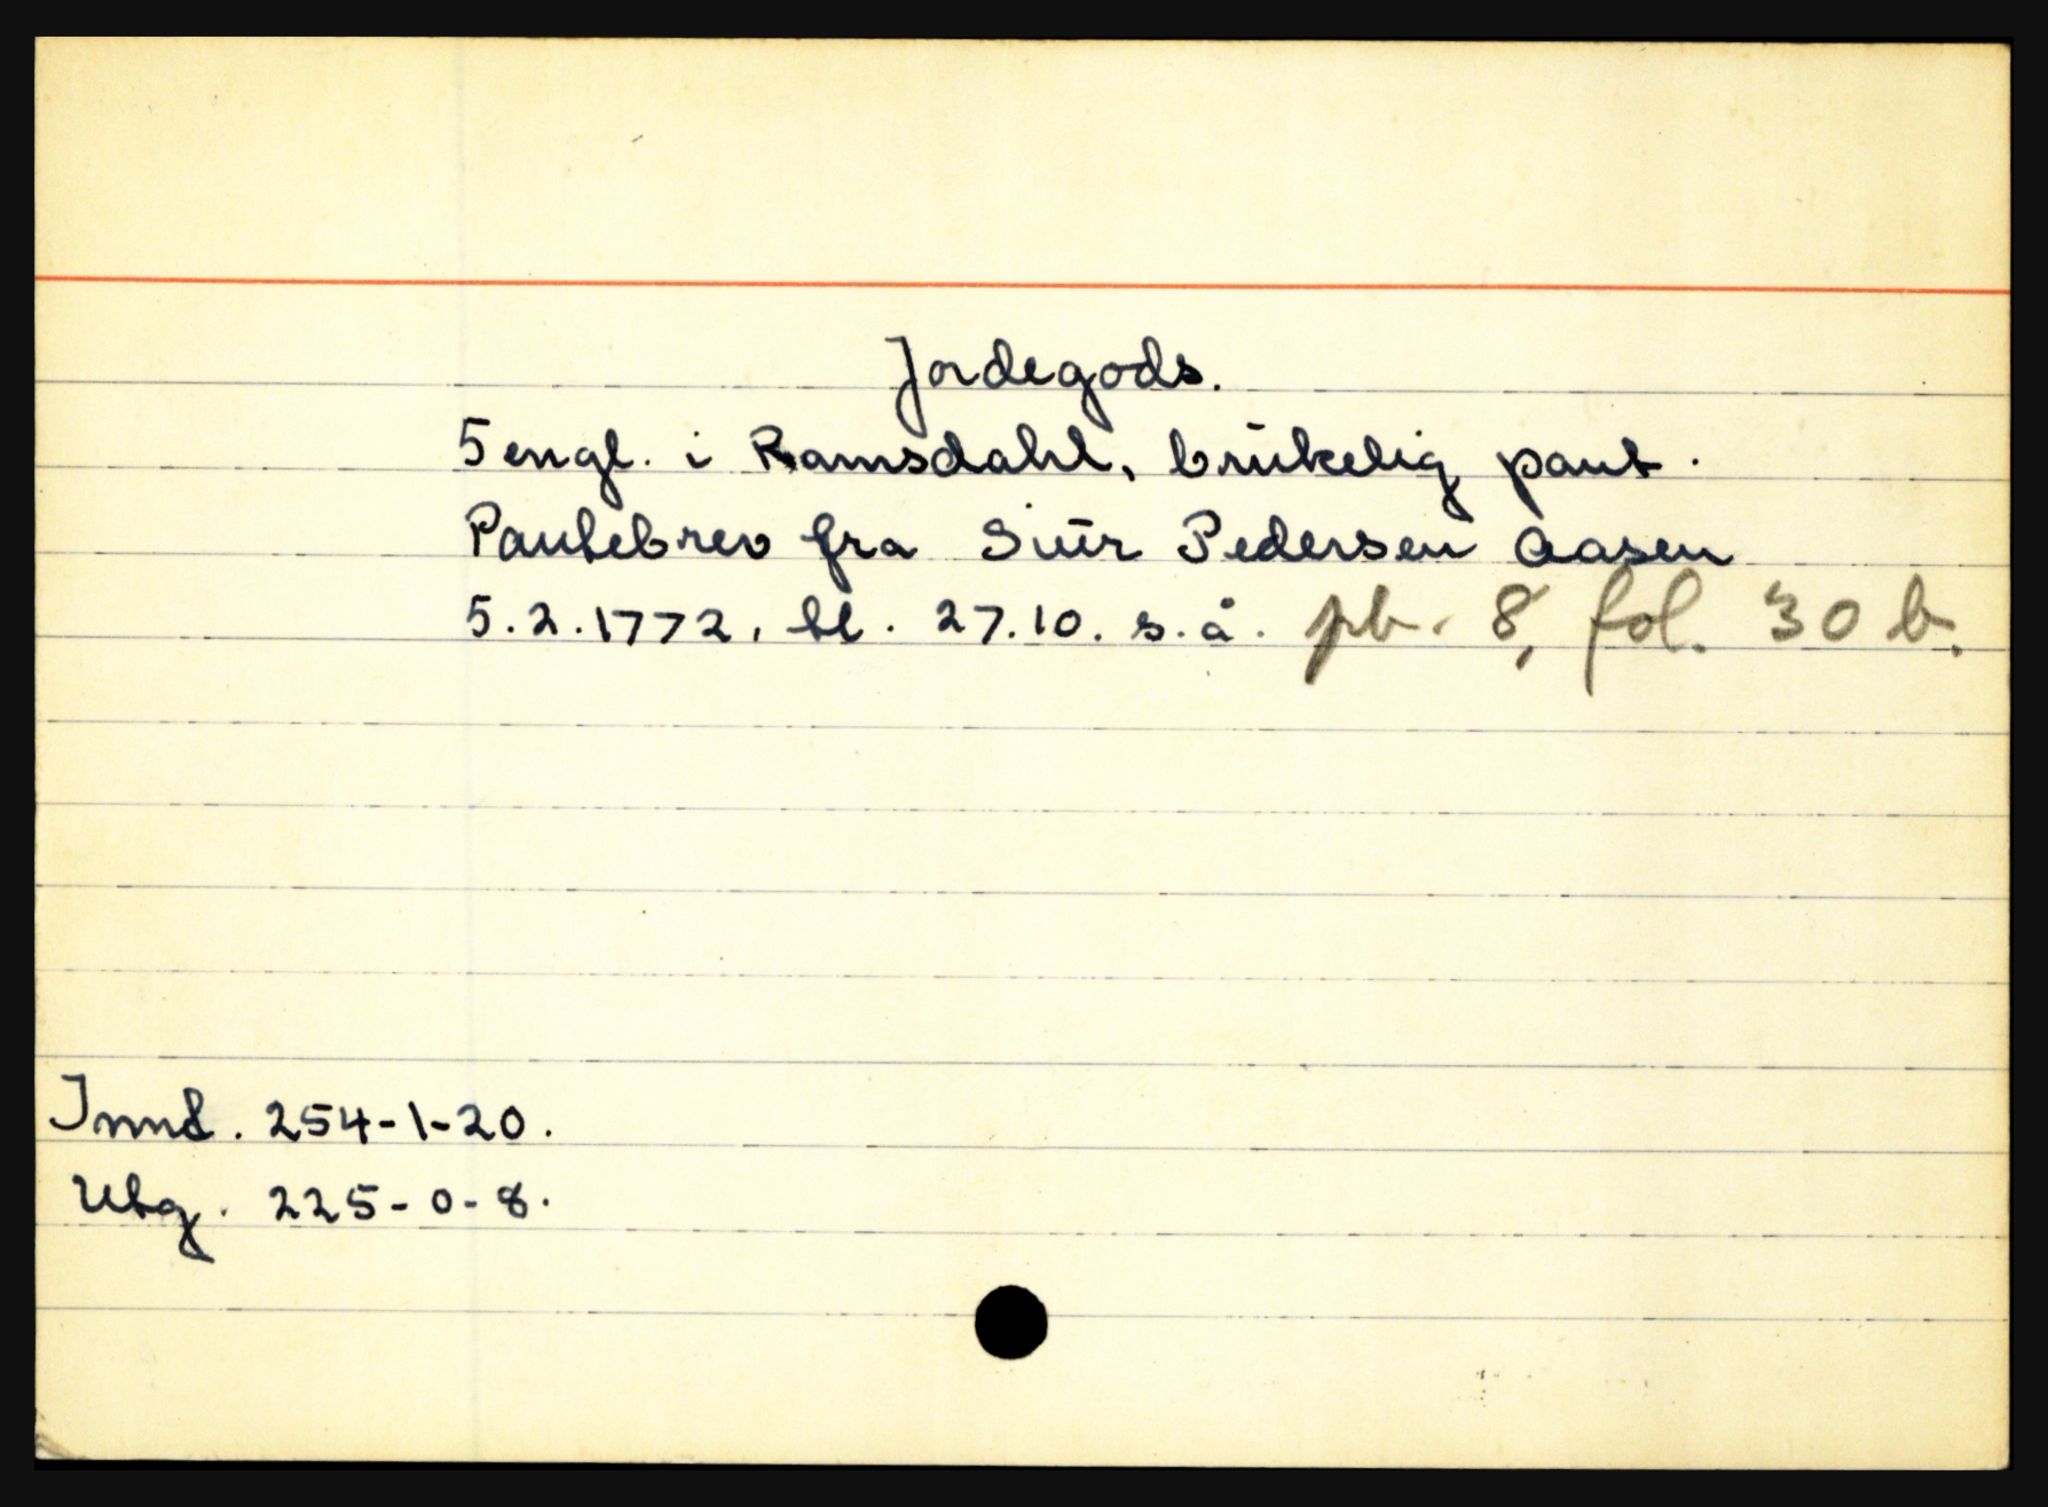 Jordegods.
5 engl. i Ramsdahl, brukelig pant.
Pantebrev fra Siur Pedersen Aasen
5.2.1772, tl. 27.10. s.å. pb. 8, fol. 30 b.
Innt. 254-1-20.
Utg. 225-0-8.